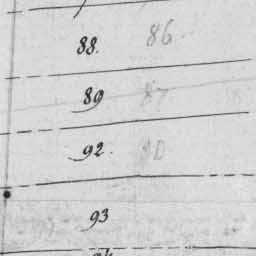 88. 86
89 87
92.
93